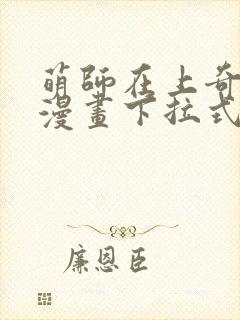 萌師在上奇
漫畫下拉式
廉恩臣